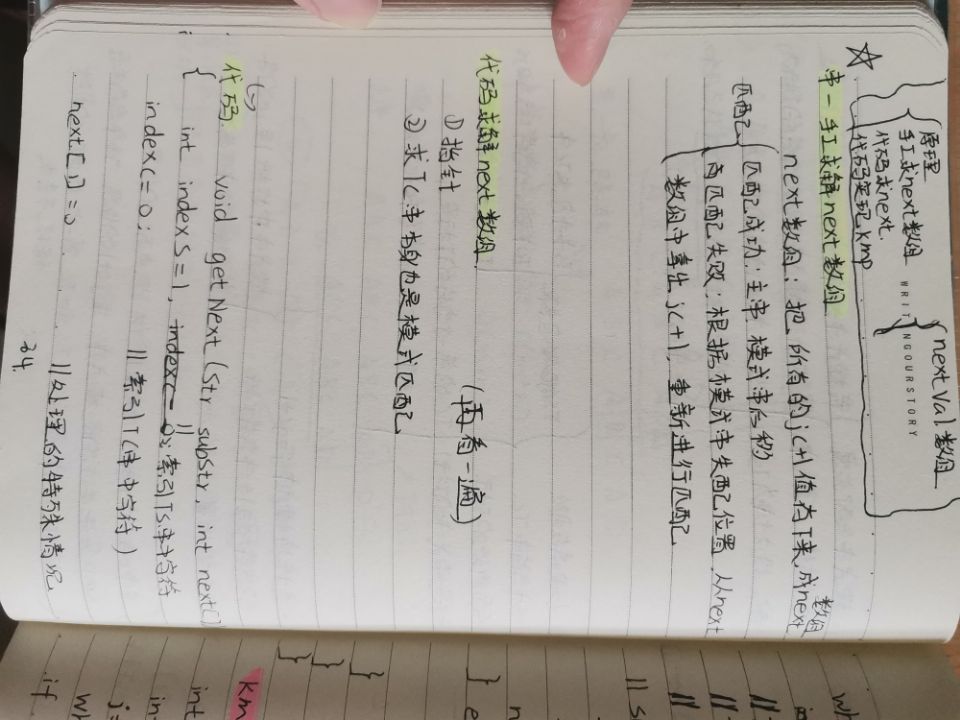 原理
手工求next数组
代码求next.
代码实现kmp
nextval数组
WRIT NGOURSTORY
串-手工求解next数组
next数组：把所有的j(+1)值存下来,成next数组
匹配
匹配成功：主串、模式串后移
有匹配失败：根据模式串失配位置,从next
数组中拿出j(+1),重新进行匹配.
代码求解next数组.
① 指针 (再看一遍)
② 求Tc.串本身也是模式匹配
代码. void getNext (Str substr, int next[]
{
int indexS=1, indexc=0; //索引Ts串中字符
indexc=0; //索引Tc串中字符)
next[1]=0 //处理的特殊情况.
34.
km
int
if